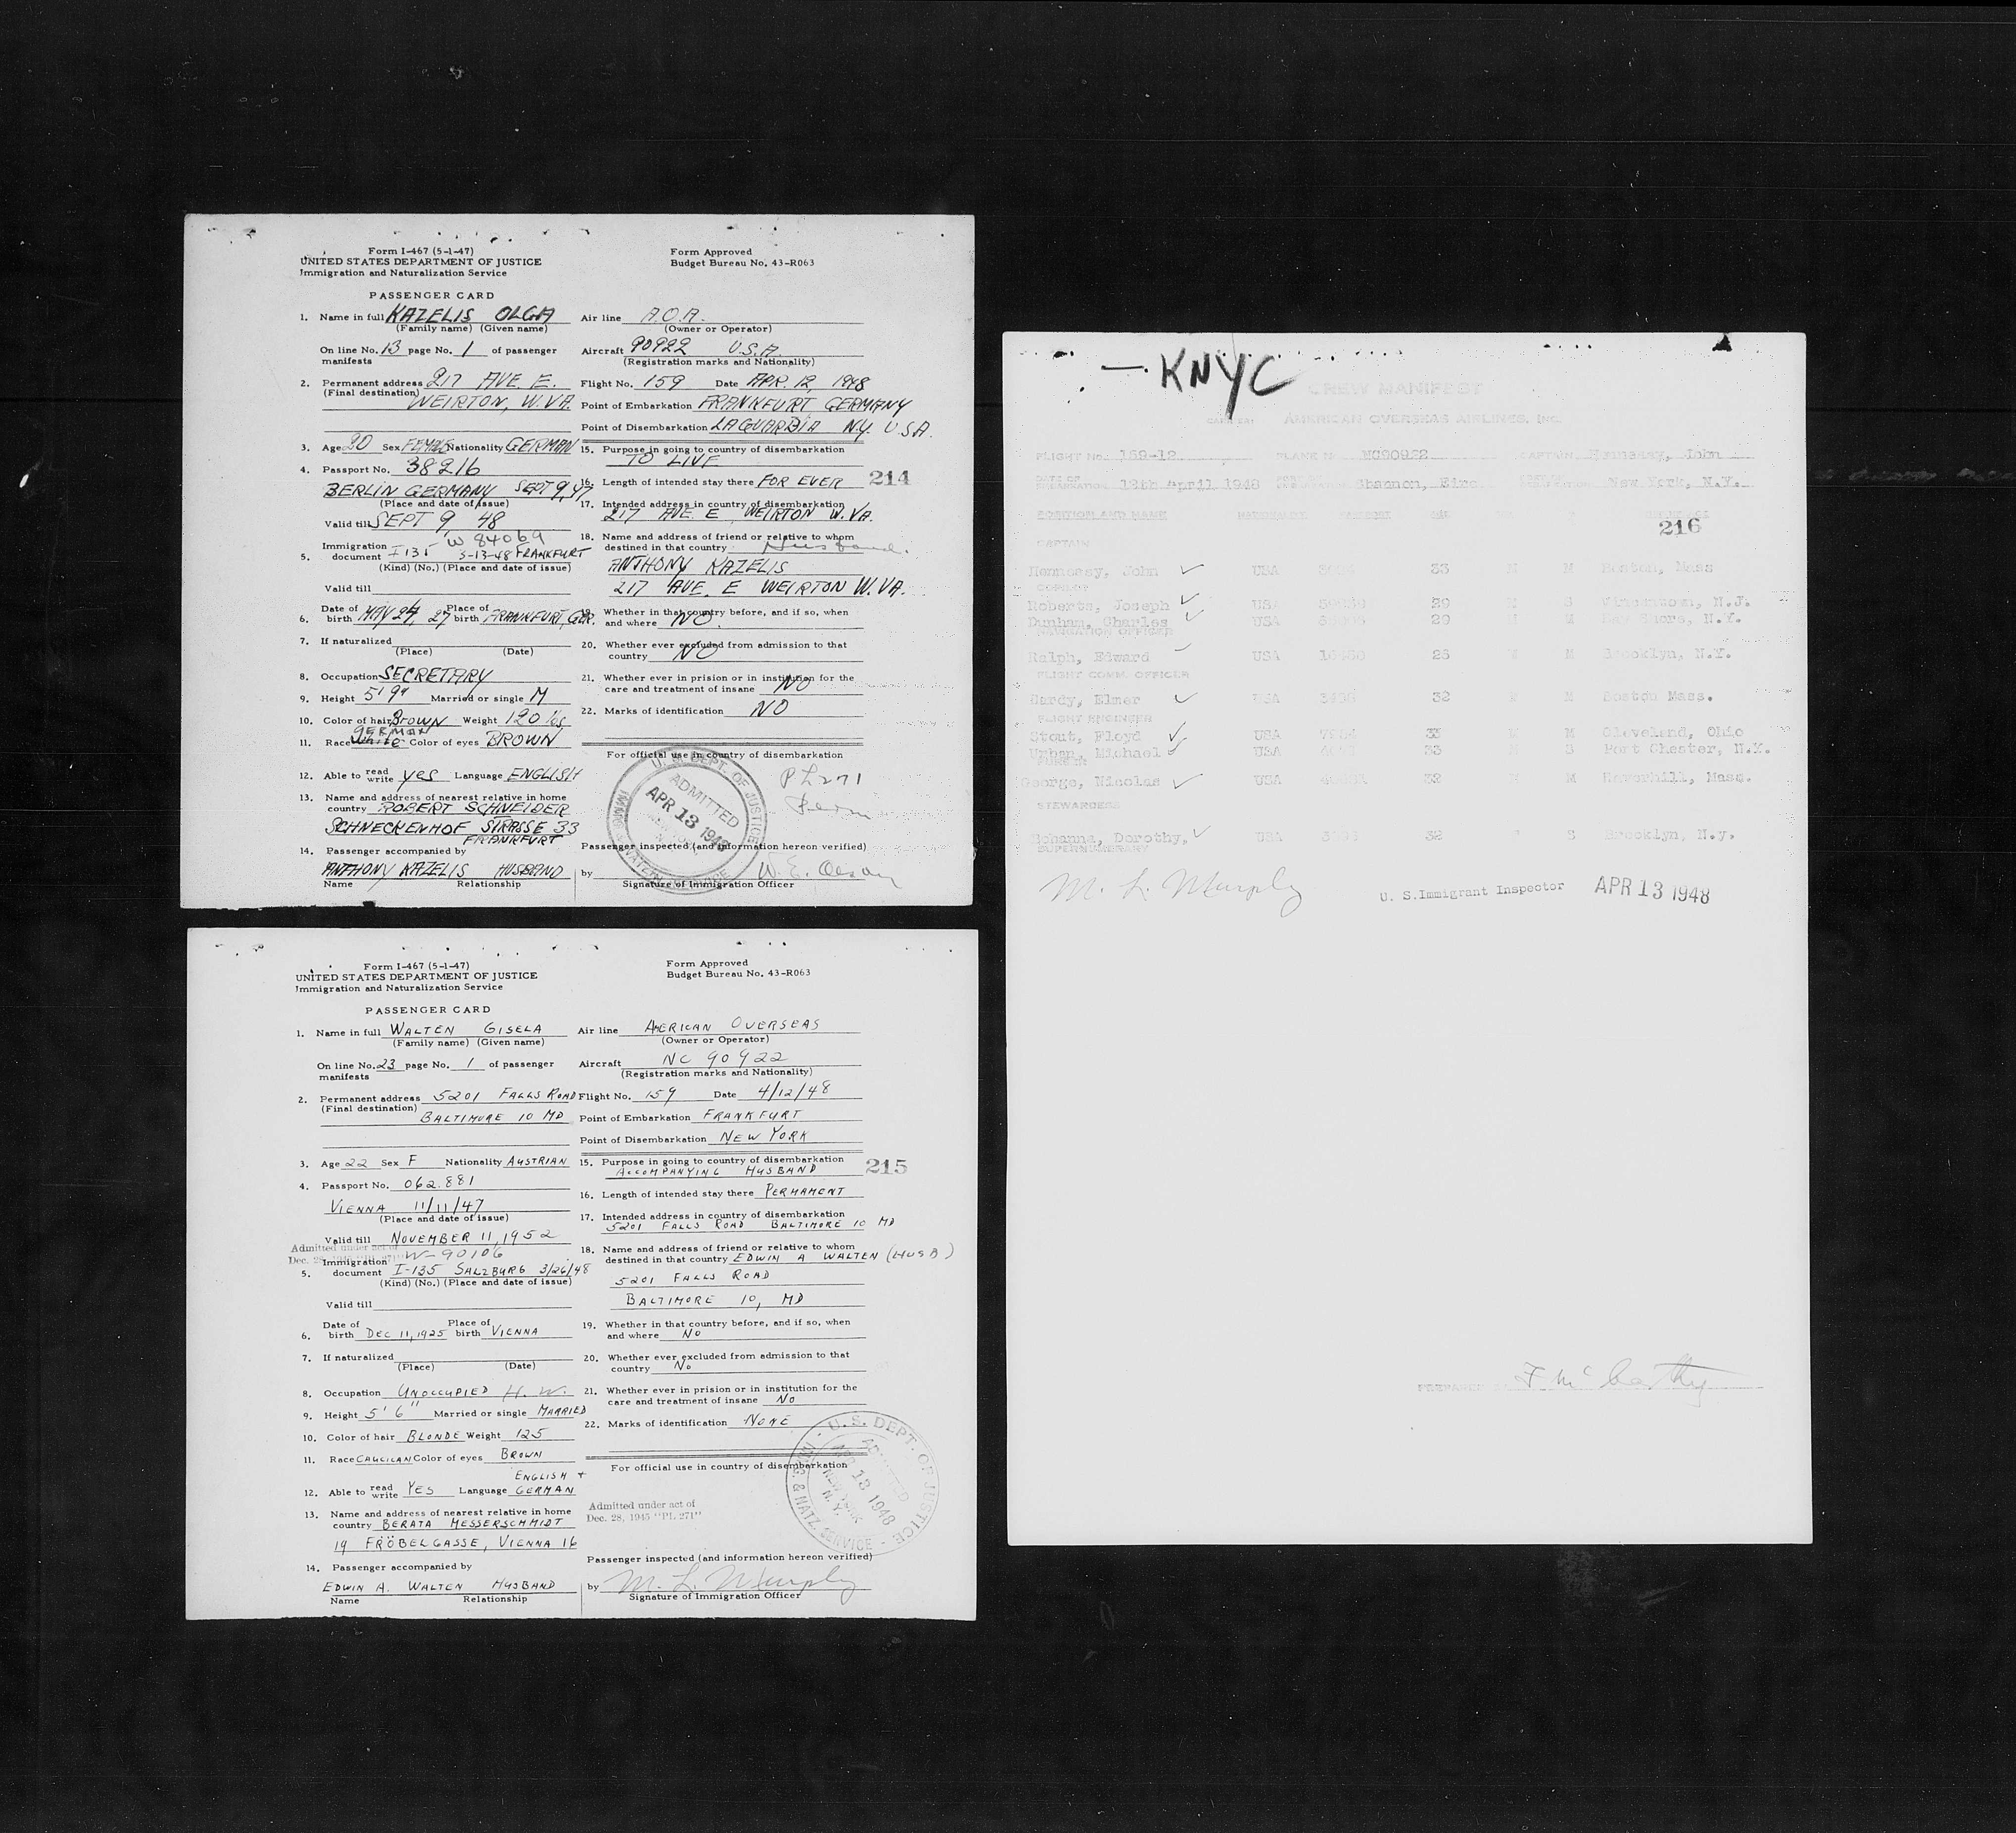 Form I-467 (5-1-47)
UNITED STATES DEPARTMENT OF JUSTICE
Immigration and Naturalization Service
Form Approved
Budget Bureau No. 43-R063
PASSENGER CARD
1. Name in full KAZELIS OLGA
(Family name) (Given name)
On line No. 13 page No. 1 of passenger
manifests
2. Permanent address 217 AVE. E.
(Final destination) WEIRTON, W.VA.
3. Age 20 Sex FEMALE Nationality GERMAN
4. Passport No. 38216
BERLIN GERMANY SEPT 9, 47
(Place and date of issue)
Valid till SEPT 9, 48
W 84069
5. Immigration
document I 135 3-13-48 FRANKFURT
(Kind) (No.) (Place and date of issue)
Valid till
6. Date of birth MAY 24, 27 Place of birth FRANKFURT, GER.
7. If naturalized
(Place) (Date)
8. Occupation SECRETARY
9. Height 5'9" Married or single M
10. Color of hair Brown Weight 120 lbs
GERMAN
11. Race White Color of eyes BROWN
12. Able to read write yes Language ENGLISH
13. Name and address of nearest relative in home
country ROBERT SCHNEIDER
SCHNECKENHOF STRASSE 33
FRANKFURT
14. Passenger accompanied by
ANTHONY KAZELIS HUSBAND
Name Relationship
Air line A.O.A.
(Owner or Operator)
Aircraft 90922 U.S.A.
(Registration marks and Nationality)
Flight No. 159 Date APR. 12, 1948
Point of Embarkation FRANKFURT GERMANY
Point of Disembarkation LAGUARDIA N.Y. U.S.A.
15. Purpose in going to country of disembarkation
TO LIVE
16. Length of intended stay there FOR EVER
214
17. Intended address in country of disembarkation
217 AVE. E, WEIRTON W.VA.
18. Name and address of friend or relative to whom
destined in that country Husband.
ANTHONY KAZELIS
217 AVE. E WEIRTON W.VA.
19. Whether in that country before, and if so, when
and where NO.
20. Whether ever excluded from admission to that
country NO
21. Whether ever in prision or in institution for the
care and treatment of insane NO
22. Marks of identification NO
For official use in country of disembarkation
U.S. DEPT. OF JUSTICE
ADMITTED
APR 13 1948
PL 271
Passenger inspected (and information hereon verified)
by W. E. Olson
Signature of Immigration Officer
Form I-467 (5-1-47)
UNITED STATES DEPARTMENT OF JUSTICE
Immigration and Naturalization Service
Form Approved
Budget Bureau No. 43-R063
PASSENGER CARD
1. Name in full WALTEN GISELA
(Family name) (Given name)
On line No. 23 page No. 1 of passenger
manifests
2. Permanent address 5201 FALLS ROAD
(Final destination) BALTIMORE 10 MD
3. Age 22 Sex F Nationality AUSTRIAN
4. Passport No. 062.881
VIENNA 11/11/47
(Place and date of issue)
Valid till NOVEMBER 11, 1952
Admitted under act of
Dec. 28, 1945 "PL 271" W-90106
5. Immigration
document I-135 SALZBURG 3/26/48
(Kind) (No.) (Place and date of issue)
Valid till
6. Date of birth DEC 11, 1925 Place of birth VIENNA
7. If naturalized
(Place) (Date)
8. Occupation UNOCCUPIED H. W.
9. Height 5' 6" Married or single MARRIED
10. Color of hair BLONDE Weight 125
11. Race CAUCICAN Color of eyes BROWN
12. Able to read write YES Language ENGLISH + GERMAN
13. Name and address of nearest relative in home
country BERATA MESSERSCHMIDT
19 FRÖBELGASSE, VIENNA 16
14. Passenger accompanied by
EDWIN A. WALTEN HUSBAND
Name Relationship
Air line AMERICAN OVERSEAS
(Owner or Operator)
Aircraft NC 90922
(Registration marks and Nationality)
Flight No. 159 Date 4/12/48
Point of Embarkation FRANKFURT
Point of Disembarkation NEW YORK
15. Purpose in going to country of disembarkation
ACCOMPANYING HUSBAND
215
16. Length of intended stay there PERMAMENT
17. Intended address in country of disembarkation
5201 FALLS ROAD BALTIMORE 10 MD
18. Name and address of friend or relative to whom
destined in that country EDWIN A WALTEN (HUSB)
5201 FALLS ROAD
BALTIMORE 10, MD
19. Whether in that country before, and if so, when
and where NO
20. Whether ever excluded from admission to that
country NO
21. Whether ever in prision or in institution for the
care and treatment of insane NO
22. Marks of identification NONE
For official use in country of disembarkation
U.S. DEPT. OF JUSTICE
IMMIG. & NATZ. SERVICE
ADMITTED
APR 13 1948
NEW YORK
N. Y.
Admitted under act of
Dec. 28, 1945 "PL 271"
Passenger inspected (and information hereon verified)
by M. L. Murphy
Signature of Immigration Officer
— KNYC
CREW MANIFEST
AMERICAN OVERSEAS AIRLINES, INC.
FLIGHT No. 159-12 PLANE No. NC90922 CAPTAIN Hennessy, John
12th April 1948 Shannon, Eire. New York, N.Y.
POSITION AND NAME
216
CAPTAIN
Hennessy, John USA 33 M Boston, Mass
COPILOT
Roberts, Joseph USA 29 S Vincentown, N.J.
Dunham, Charles USA 29 M Bay Shore, N.Y.
NAVIGATION OFFICER
Ralph, Edward USA M Brooklyn, N.Y.
FLIGHT COMM. OFFICER
Hardy, Elmer USA 32 M Boston Mass.
FLIGHT ENGINEER
Stout, Floyd USA M Cleveland, Ohio
Urban, Michael USA 33 S Port Chester, N.Y.
PURSER
George, Nicolas USA 32 M Haverhill, Mass.
STEWARDESS
Dorothy, USA 32 S Brooklyn, N.y.
SUPERNUMERARY
M. L. Murphy U. S.Immigrant Inspector APR 13 1948
PREPARED BY F McCarthy